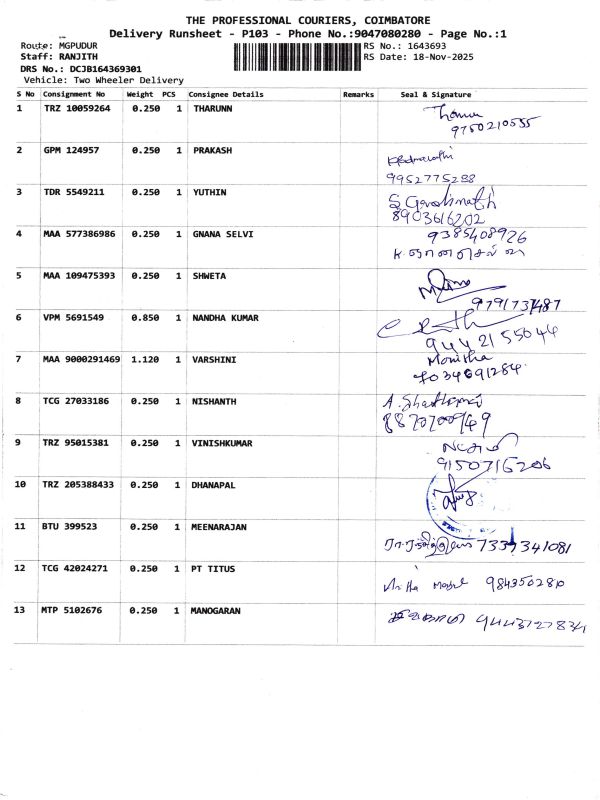 THE PROFESSIONAL COURIERS, COIMBATORE
Delivery Runsheet - P103 - Phone No.:9047080280 - Page No.:1
Route: MGPUDUR RS No.: 1643693
Staff: RANJITH RS Date: 18-Nov-2025
DRS No.: DCJB164369301
Vehicle: Two Wheeler Delivery
S No Consignment No Weight PCS Consignee Details Remarks Seal & Signature
1 TRZ 10059264 0.250 1 THARUNN
9750210555
2 GPM 124957 0.250 1 PRAKASH
9952775288
3 TDR 5549211 0.250 1 YUTHIN
8903616202
4 MAA 577386986 0.250 1 GNANA SELVI 9385408926
5 MAA 109475393 0.250 1 SHWETA
6 VPM 5691549 0.850 1 NANDHA KUMAR
9442155044
7 MAA 9000291469 1.120 1 VARSHINI Monisha
8 TCG 27033186 0.250 1 NISHANTH
9 TRZ 95015381 0.250 1 VINISHKUMAR
9150716206
10 TRZ 205388433 0.250 1 DHANAPAL
11 BTU 399523 0.250 1 MEENARAJAN
7339341081
12 TCG 42024271 0.250 1 PT TITUS
13 MTP 5102676 0.250 1 MANOGARAN